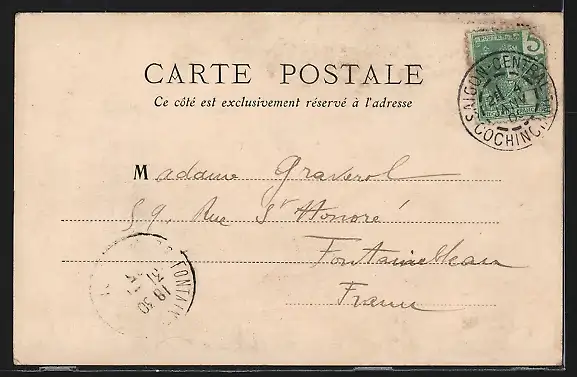 5
SAIGON-CENTRAL
COCHINCHINE
CARTE POSTALE
Ce côté est exclusivement réservé à l'adresse
Madame Graverol
59. Rue St Honoré
Fontainebleau
France
FONTAIN
18 30